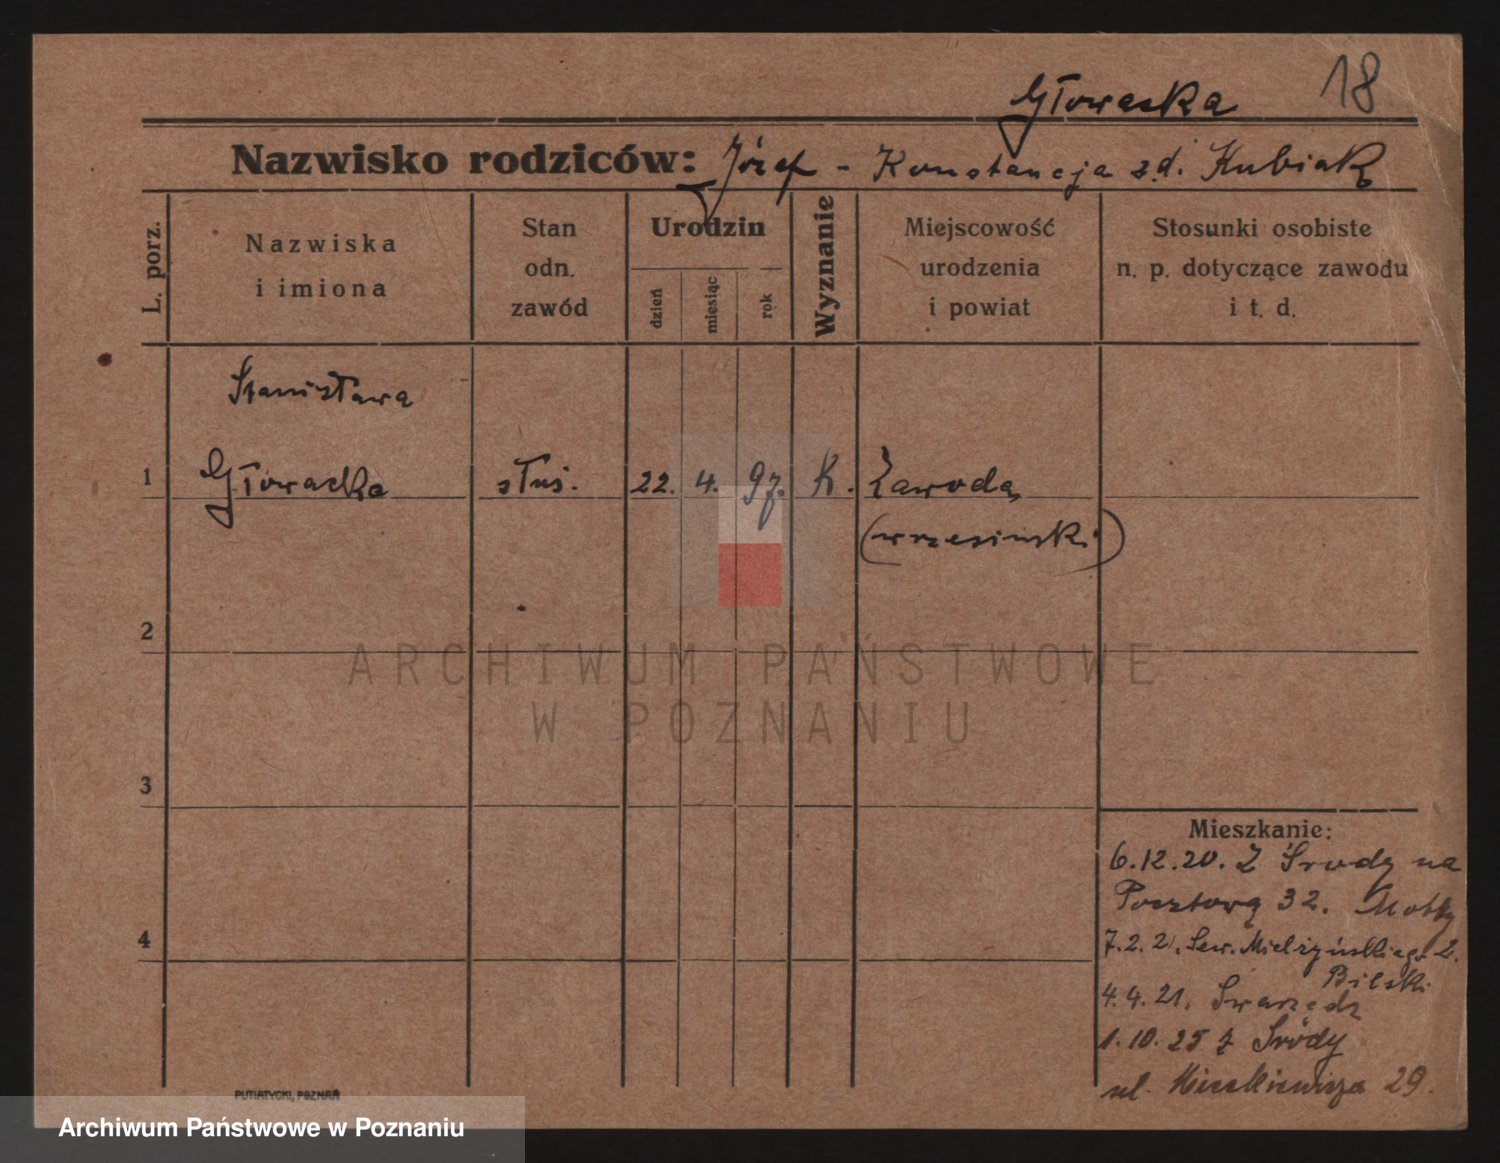 18
Głowacka
Nazwisko rodziców: Józef - Konstancja z d. Kubiak
L. porz.
Nazwiska
i imiona
Stan
odn.
zawód
Urodzin
dzień
miesiąc
rok
Wyznanie
Miejscowość
urodzenia
i powiat
Stosunki osobiste
n. p. dotyczące zawodu
i t. d.
Stanisława
1 Głowacka służ. 22. 4. 97. K. Zawoda
(wrzesiński)
2
ARCHIWUM PAŃSTWOWE
W POZNANIU
3
Mieszkanie:
6.12.20. Z Środy na
Pocztową 32.
4
7.2.21. Sew. Mielżyńskiego 2.
Bilski
4.4.21. Swarzędz
1.10.25 z Środy
ul. Mickiewicza 29.
PUTIATYCKI, POZNAŃ
Archiwum Państwowe w Poznaniu